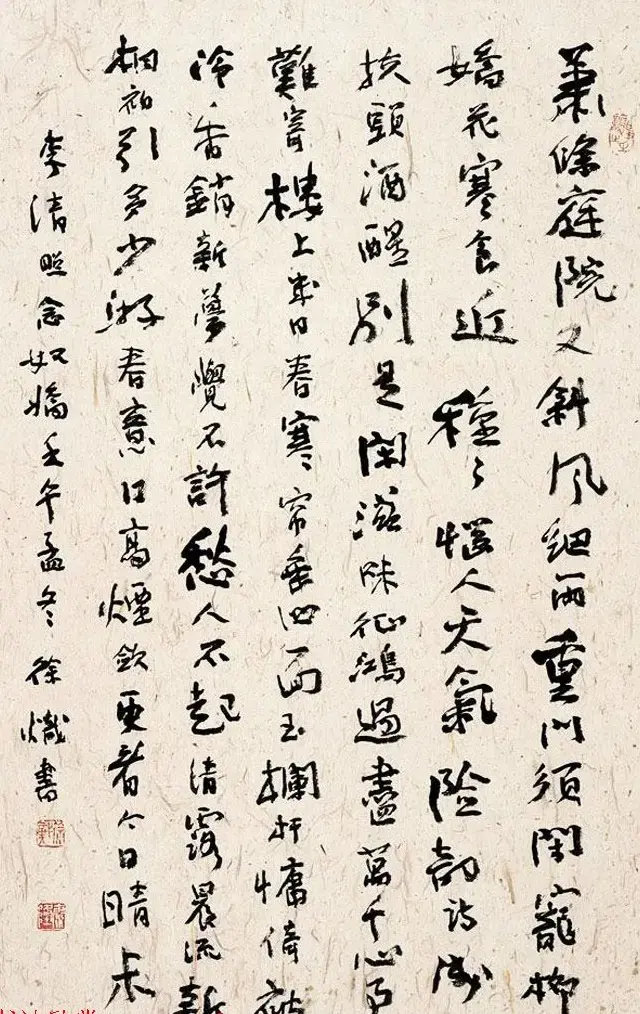 蕭條庭院又斜風細雨重門須閉寵柳
嬌花寒食近種〻惱人天氣險韻詩成
扶頭酒醒別是閑滋味征鴻過盡萬千心事
難寄樓上幾日春寒帘垂四面玉欄杆慵倚被
冷香銷新夢覺不許愁人不起清露晨流新
桐初引多少游春意日高煙斂更看今日晴未
李清照念奴嬌壬午孟冬徐熾書